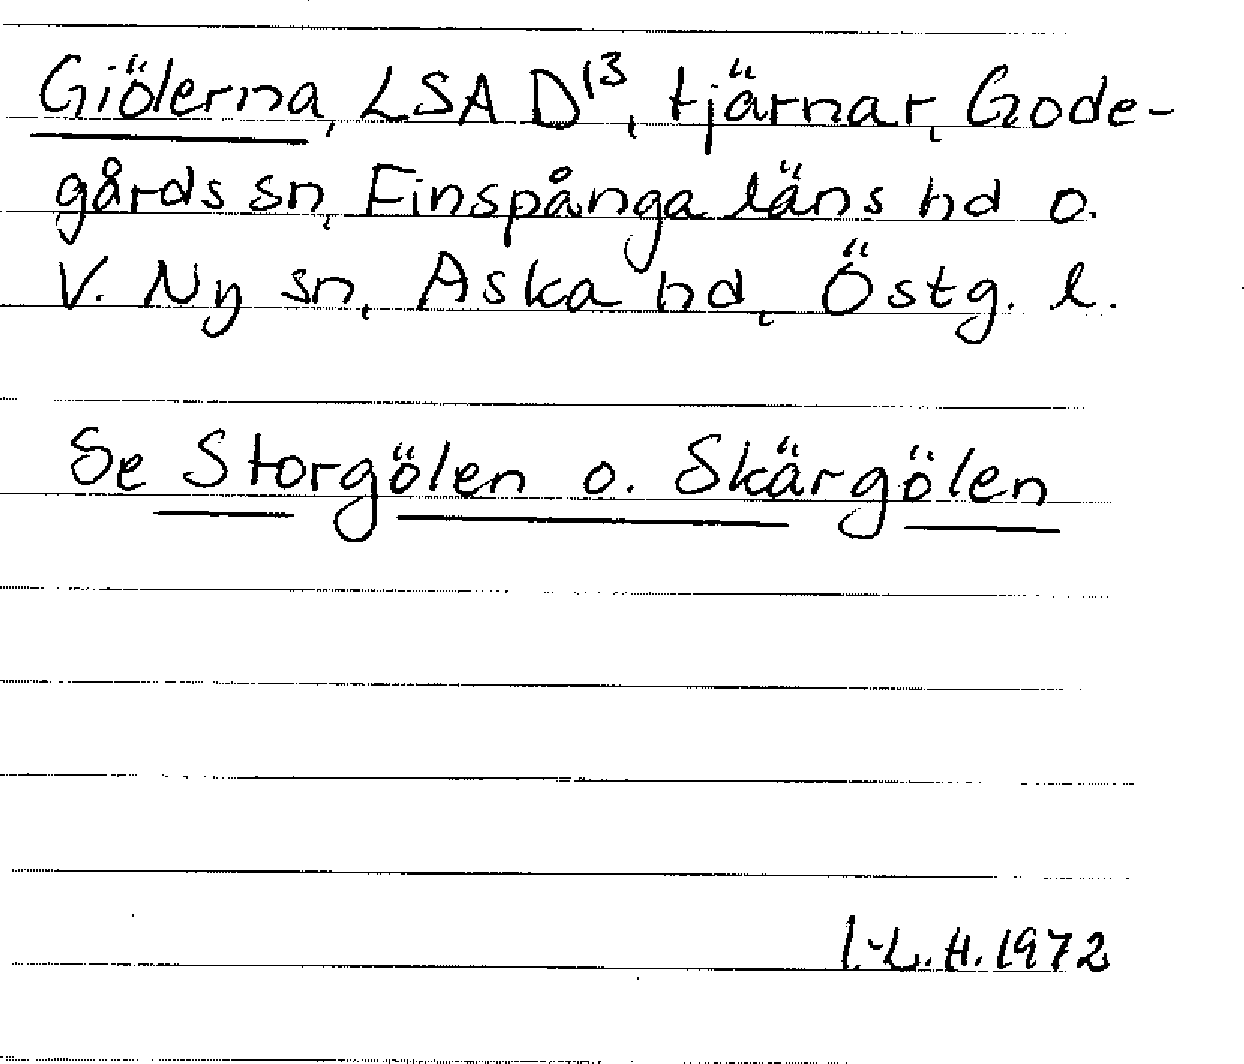 Giölerna, LSA D¹³, tjärnar, Gode-
gårds sn, Finspånga läns hd o.
V. Ny sn, Aska hd, Östg. l.
Se Storgölen o. Skärgölen
I.-L. H. 1972